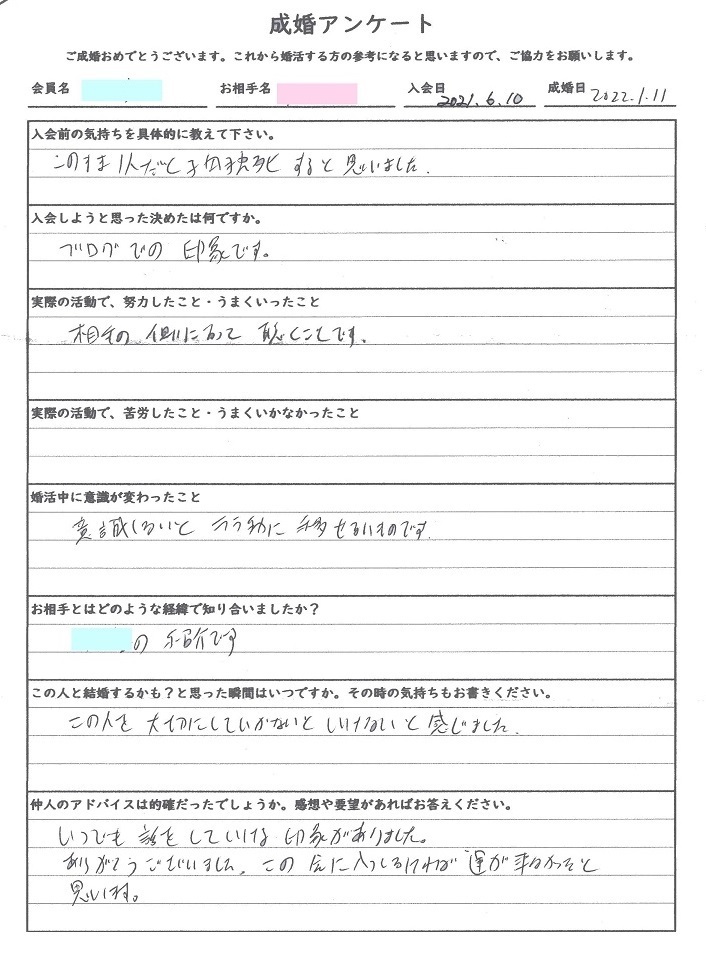 成婚アンケート
ご成婚おめでとうございます。これから婚活する方の参考になると思いますので、ご協力をお願いします。
会員名 お相手名 入会日 2021.6.10 成婚日 2022.1.11
入会前の気持ちを具体的に教えて下さい。
このまま1人だと孤独死すると思いました.
入会しようと思った決めたは何ですか。
ブログでの印象です。
実際の活動で、努力したこと・うまくいったこと
相手の側に立って聴くことです.
実際の活動で、苦労したこと・うまくいかなかったこと
婚活中に意識が変わったこと
意識しないと行動に移せないものです.
お相手とはどのような経緯で知り合いましたか？
の紹介です
この人と結婚するかも？と思った瞬間はいつですか。その時の気持ちもお書きください。
この人を大切にしていかないといけないと感じました.
仲人のアドバイスは的確だったでしょうか。感想や要望があればお答えください。
いつでも話をしていける印象がありました。
ありがとうございました。この会に入ってなければ運が来なかったと
思います。